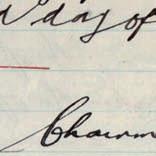 day of
Chairm